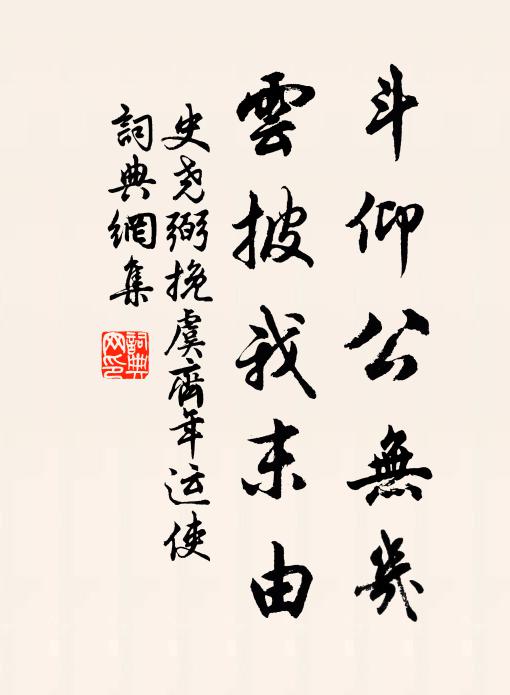 斗仰公無幾
雲披我末由
史尧弼挽虞齊年运使
詞典網集
詞典網印